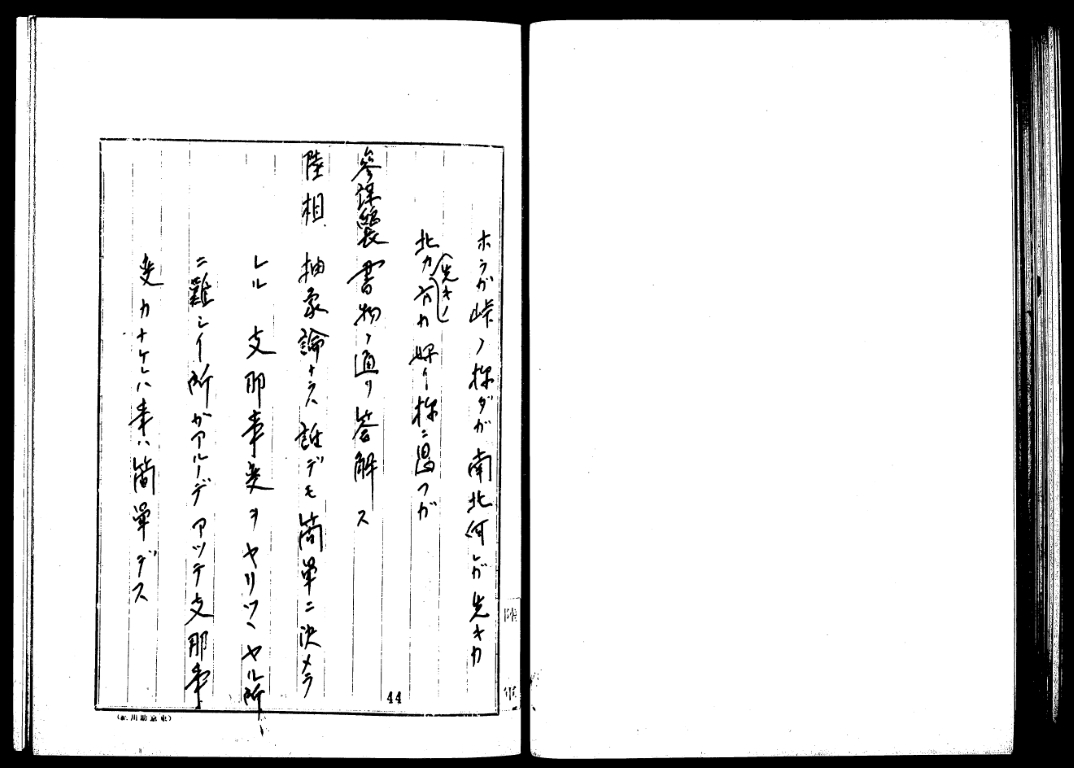 ホラガ峠ノ様ダガ南北何レガ先キカ
北カ(先キノ)方カ好イ様ニ思フガ
参謀総長 書物ノ通リ答解ス
陸相 抽象論ナラハ誰デモ簡単ニ決メラ
レル 支那事変ヲヤリツヽヤル所
ニ難シイ所ガアルノデアツテ支那事
変カナケレハ事ハ簡単デス
44
陸軍